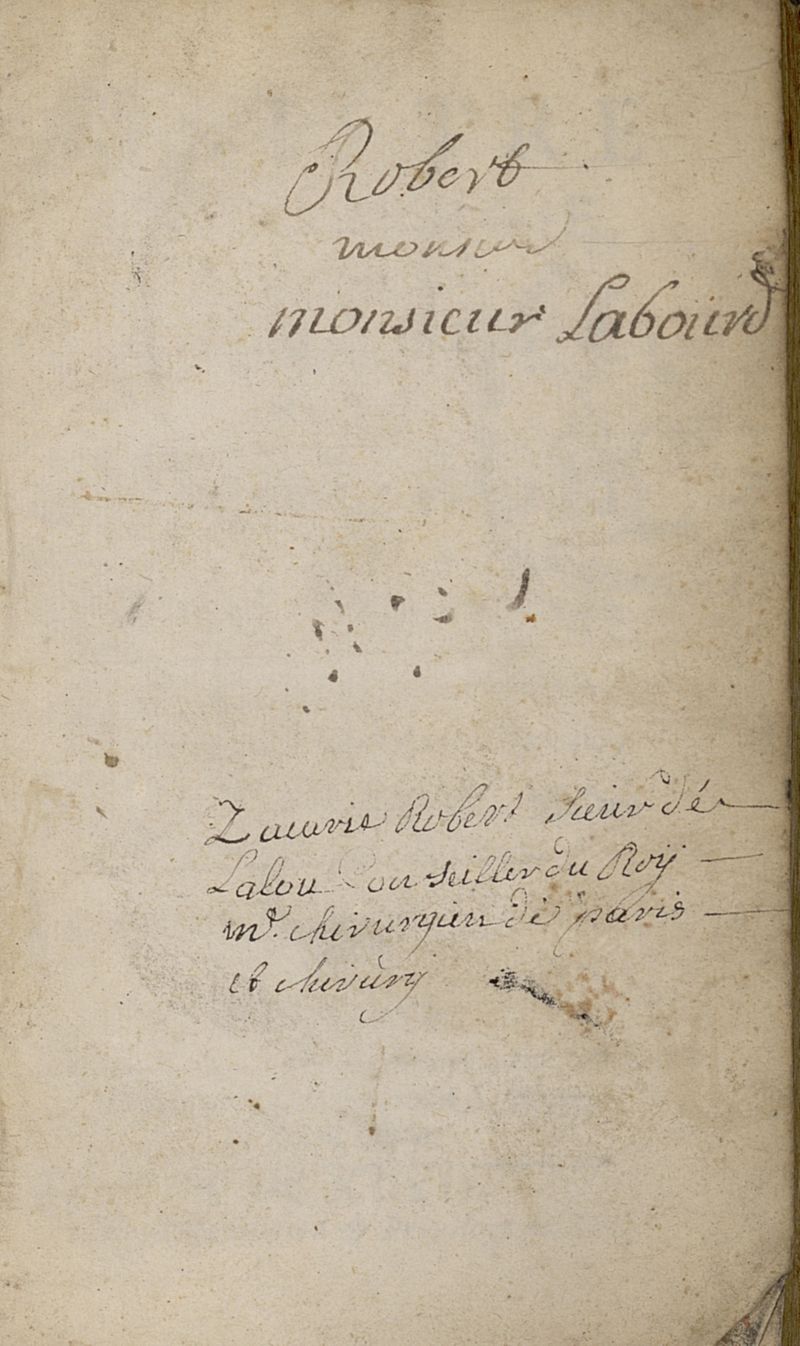 Robert
monsieur
monsieur Labourd
Robert sieur de
Lalou Conseiller du Roy
mr. chirurgien de paris
et chirurg